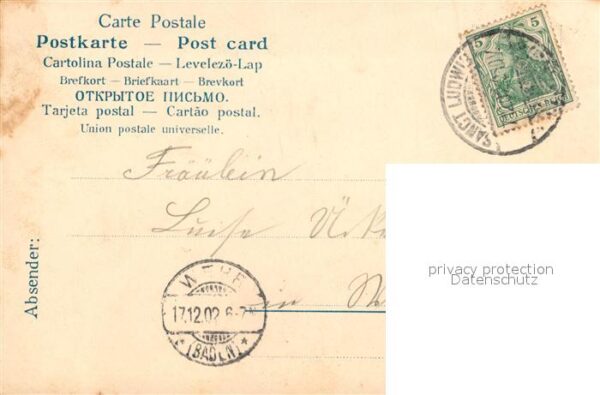 Carte Postale
Postkarte — Post card
Cartolina Postale — Levelező-Lap
Brefkort — Briefkaart — Brevkort
ОТКРЫТОЕ ПИСЬМО.
Tarjeta postal — Cartão postal.
Union postale universelle.
5 5
SANCT LUDWIG
Fräulein
Luise
in
privacy protection
Datenschutz
Absender:
17.12.02 6-7N
(BADEN)